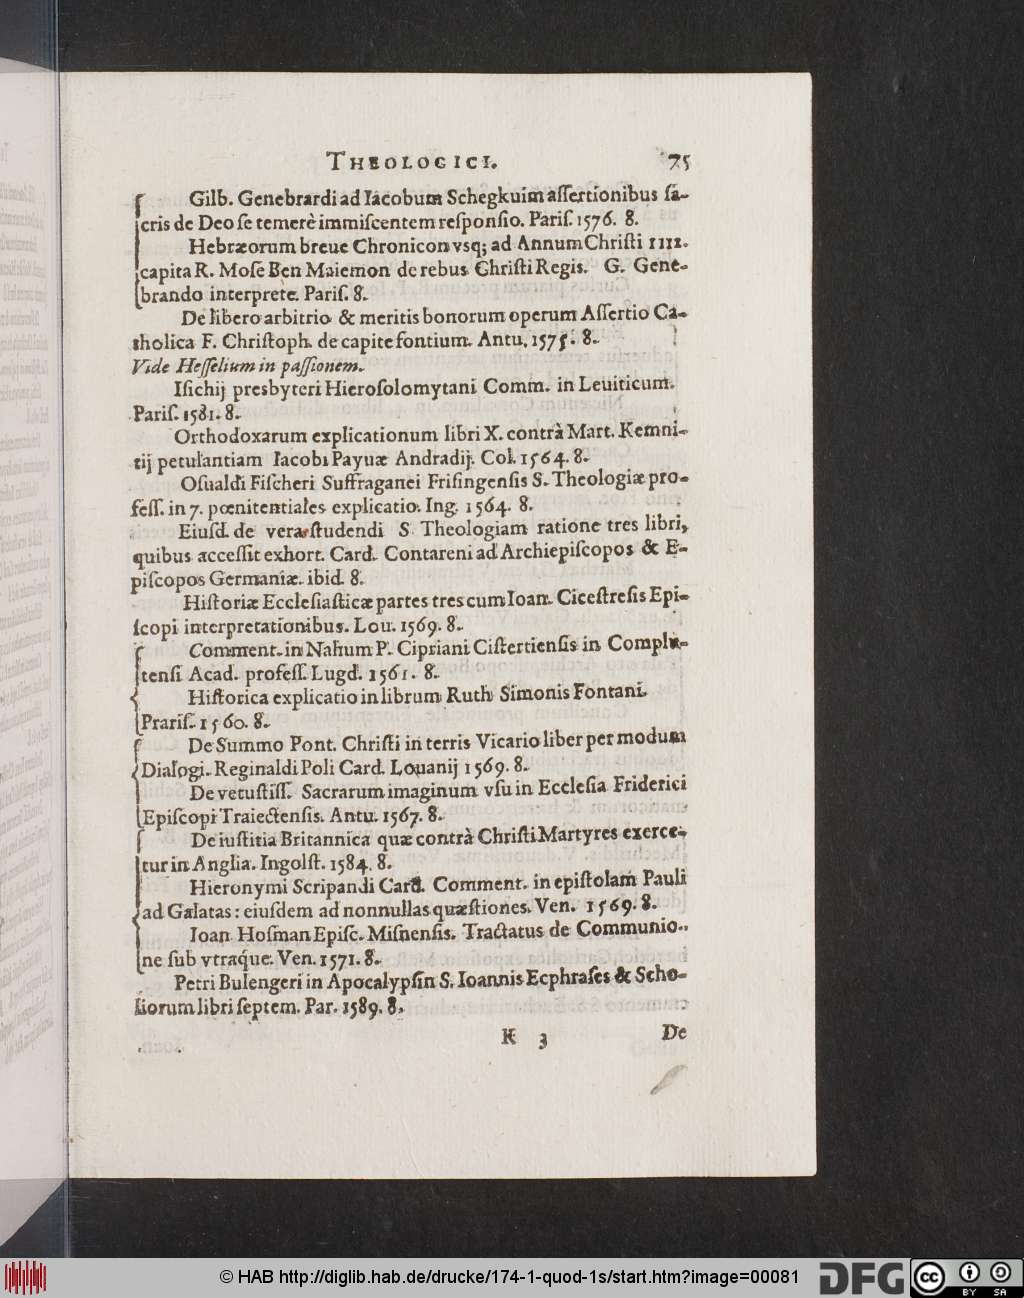 THEOLOGICI. 75
Gilb. Genebrardi ad Iacobum Schegkuim aſſertionibus ſa-
cris de Deo ſe temerè immiſcentem reſponſio. Pariſ. 1576. 8.
Hebræorum breue Chronicon vsq; ad Annum Chriſti 1112.
capita R. Moſe Ben Maiemon de rebus Chriſti Regis. G. Gene-
brando interprete. Pariſ. 8.
De libero arbitrio & meritis bonorum operum Aſſertio Ca-
tholica F. Chriſtoph. de capite fontium. Antu. 1575. 8.
Vide Heſſelium in paſſionem.
Iſichij presbyteri Hieroſolomytani Comm. in Leuiticum.
Pariſ. 1581. 8.
Orthodoxarum explicationum libri X. contrà Mart. Kemni-
tij petulantiam Iacobi Payuæ Andradij. Col. 1564. 8.
Oſualdi Fiſcheri Suffraganei Friſingenſis S. Theologiæ pro-
feſſ. in 7. pœnitentiales explicatio. Ing. 1564. 8.
Eiuſd. de vera ſtudendi S. Theologiam ratione tres libri,
quibus acceſſit exhort. Card. Contareni ad Archiepiſcopos & E-
piſcopos Germaniæ. ibid. 8.
Hiſtoriæ Eccleſiaſticæ partes tres cum Ioan. Ciceſtreſis Epi-
ſcopi interpretationibus. Lou. 1569. 8.
Comment. in Nahum P. Cipriani Ciſtertienſis in Complu-
tenſi Acad. profeſſ. Lugd. 1561. 8.
Hiſtorica explicatio in librum Ruth Simonis Fontani.
Prariſ. 1560. 8.
De Summo Pont. Chriſti in terris Vicario liber per modum
Dialogi. Reginaldi Poli Card. Louanij 1569. 8.
De vetuſtiſſ. Sacrarum imaginum vſu in Eccleſia Friderici
Epiſcopi Traiectenſis. Antu. 1567. 8.
De iuſtitia Britannica quæ contrà Chriſti Martyres exerce-
tur in Anglia. Ingolſt. 1584. 8.
Hieronymi Scripandi Card. Comment. in epiſtolam Pauli
ad Galatas: eiuſdem ad nonnullas quæſtiones. Ven. 1569. 8.
Ioan. Hoſman Epiſc. Miſnenſis. Tractatus de Communio-
ne ſub vtraque. Ven. 1571. 8.
Petri Bulengeri in Apocalypſin S. Ioannis Ecphraſes & Scho-
liorum libri ſeptem. Par. 1589. 8.
K 3 De
© HAB http://diglib.hab.de/drucke/174-1-quod-1s/start.htm?image=00081 DFG cc BY SA